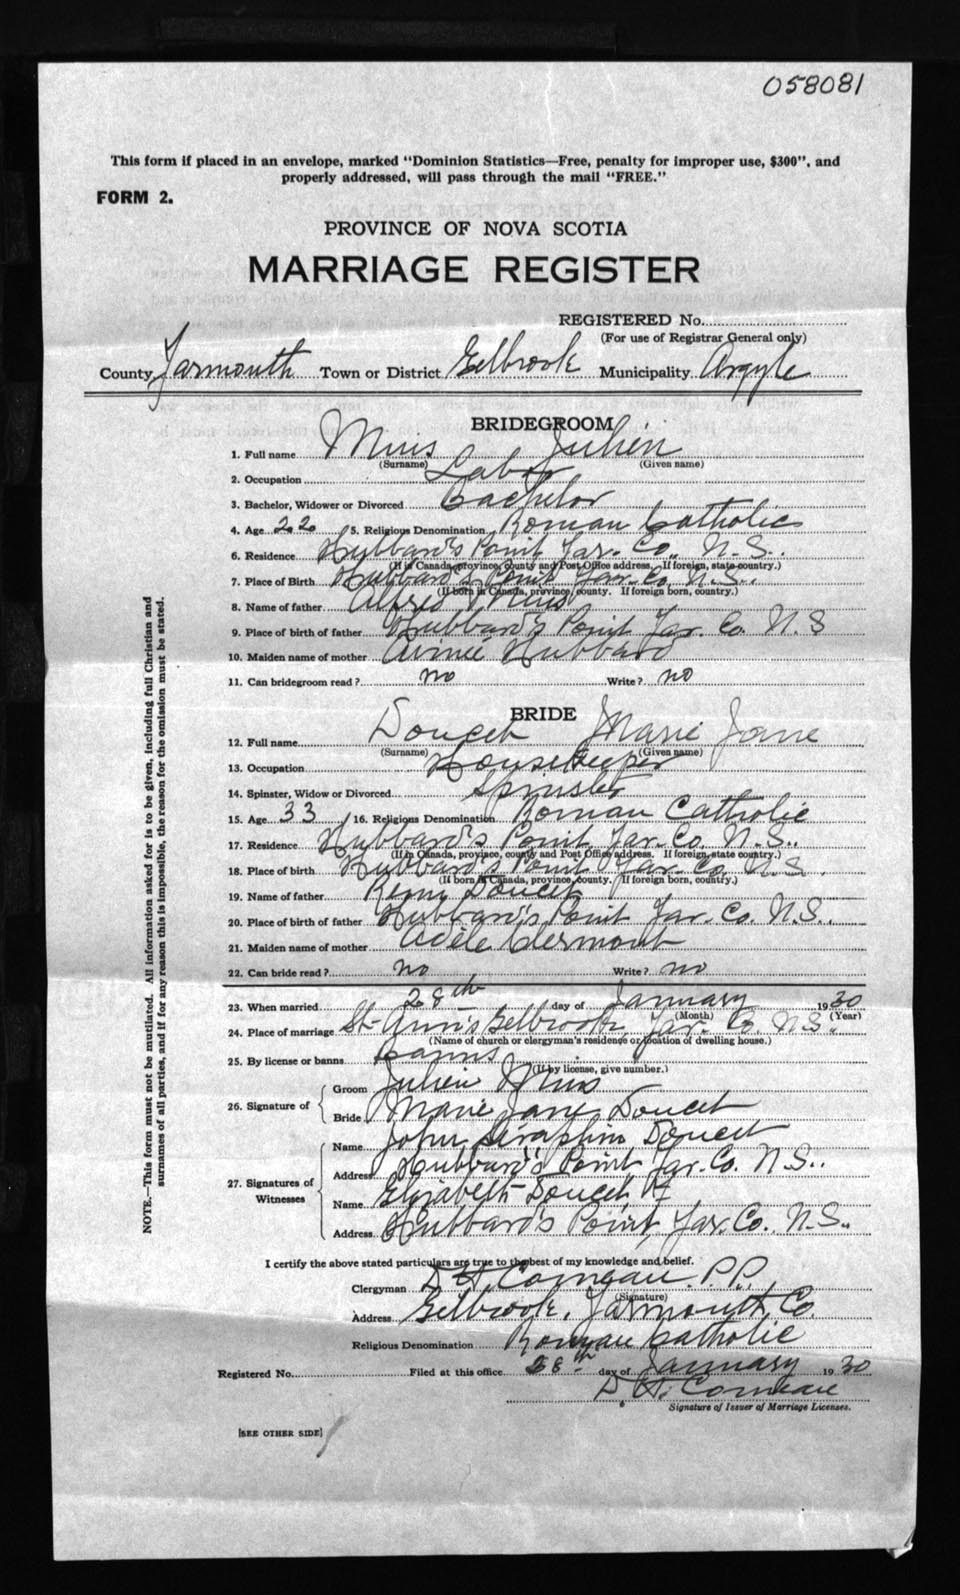 058081
This form if placed in an envelope, marked "Dominion Statistics—Free, penalty for improper use, $300", and
properly addressed, will pass through the mail "FREE."
FORM 2.
PROVINCE OF NOVA SCOTIA
MARRIAGE REGISTER
REGISTERED No.
(For use of Registrar General only)
County Yarmouth Town or District Eelbrook Municipality Argyle
BRIDEGROOM
1. Full name Muis Julien
(Surname) (Given name)
2. Occupation Labor
3. Bachelor, Widower or Divorced Bachelor
4. Age 22 5. Religious Denomination Roman Catholic
6. Residence Hubbard's Point Yar. Co. N.S.
(If in Canada, province, county and Post Office address. If foreign, state country.)
7. Place of Birth Hubbard's Point Yar. Co. N.S.
(If born in Canada, province, county. If foreign born, country.)
8. Name of father Alfred Muis
9. Place of birth of father Hubbard's Point Yar. Co. N.S
10. Maiden name of mother Aimée Hubbard
11. Can bridegroom read? no Write? no
BRIDE
12. Full name Doucet Marie Jane
(Surname) (Given name)
13. Occupation HouseKeeper
14. Spinster, Widow or Divorced Spinster
15. Age 33 16. Religious Denomination Roman Catholic
17. Residence Hubbard's Point Yar. Co. N.S.
(If in Canada, province, county and Post Office address. If foreign, state country.)
18. Place of birth Hubbard's Point Yar. Co. N.S.
(If born in Canada, province, county. If foreign born, country.)
19. Name of father Remi Doucet
20. Place of birth of father Hubbard's Point Yar. Co. N.S.
21. Maiden name of mother Adèle Clermont
22. Can bride read? no Write? no
23. When married 28th day of January 1930
(Month) (Year)
24. Place of marriage St Ann's Eelbrook, Yar. Co. N.S.
(Name of church or clergyman's residence or location of dwelling house.)
25. By license or banns Banns
(If by license, give number.)
26. Signature of
Groom Julien Muis
Bride Marie Jane Doucet
27. Signatures of Witnesses
Name John Séraphin Doucet
Address Hubbard's Point Yar. Co. N.S.
Name Elizabeth Doucet
Address Hubbard's Point, Yar. Co. N.S.
I certify the above stated particulars are true to the best of my knowledge and belief.
Clergyman D H. Comeau P.P.
(Signature)
Address Eelbrook, Yarmouth Co.
Religious Denomination Roman Catholic
Registered No. Filed at this office 28th day of January 1930
D. H. Comeau
Signature of Issuer of Marriage Licenses.
[SEE OTHER SIDE]
NOTE.—This form must not be mutilated. All information asked for is to be given, including full Christian and
surnames of all parties, and if for any reason this is impossible, the reason for the omission must be stated.